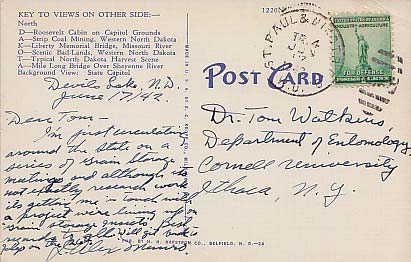 KEY TO VIEWS ON OTHER SIDE:—
North
D—Roosevelt Cabin on Capitol Grounds
A—Strip Coal Mining, Western North Dakota
K—Liberty Memorial Bridge, Missouri River
O—Scenic Bad-Lands, Western North Dakota
T—Typical North Dakota Harvest Scene
A—Mile Long Bridge Over Sheyenne River
Background View: State Capitol
Devils Lake, N.D.
June 17/42.
Dear Tom—
I'm just circulating
around the State on a
series of Grain Storage
meetings and although its
not exactly research work
its getting me in touch with
a project we're lining up on
grain storage insects. Best
regards to all. Will get back
POST CARD
ST. PAUL &
INDUSTRY AGRICULTURE
FOR DEFENSE
Dr. Tom Watkins
Department of Entomology
Cornell University
Ithaca, N.Y.
PUB. BY H. H. BELFIELD, N. D.—24